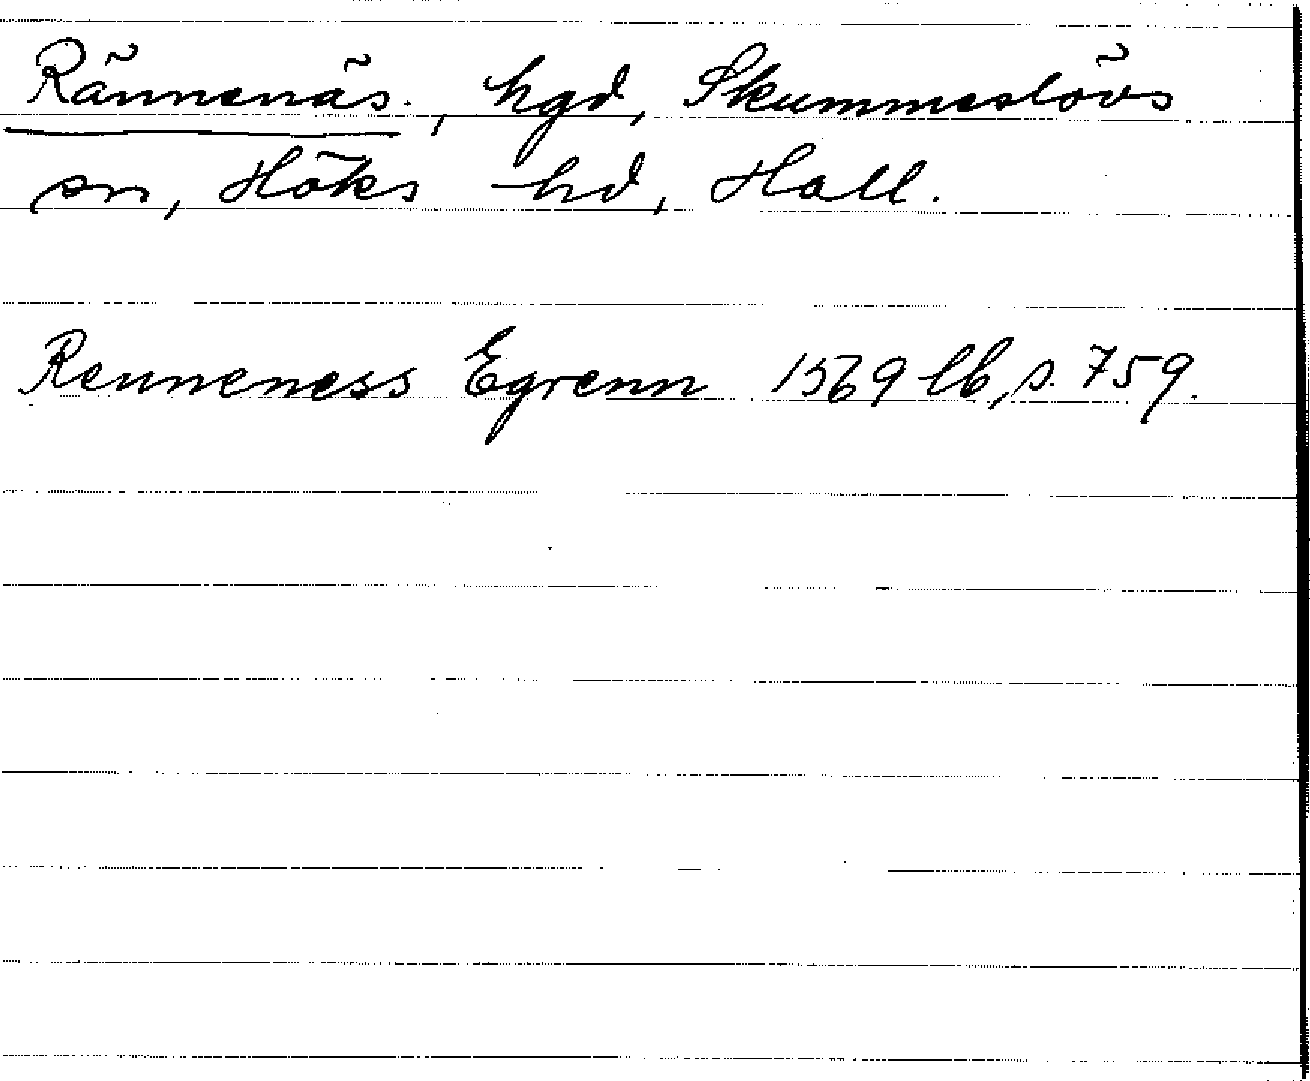 Rännenäs., hgd, Skummeslövs
sn, Höks hd, Hall.
Renneness Egrenn 1569 lb, s. 759.